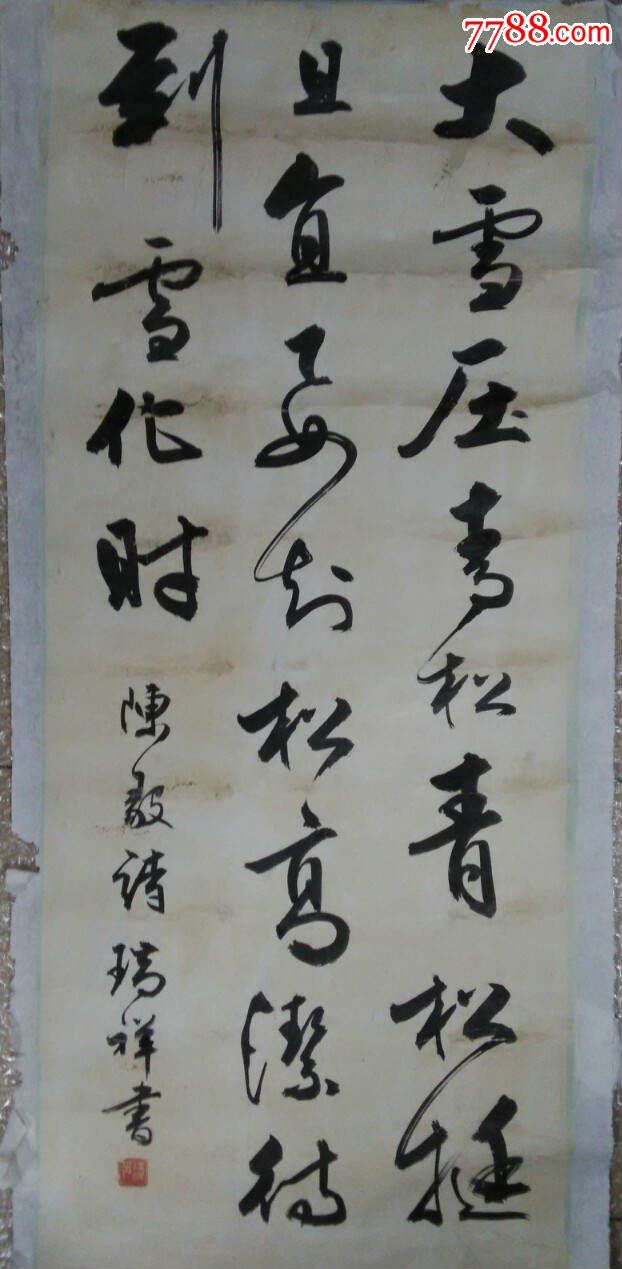 7788.com
大雪压青松青松挺
且直要知松高潔待
到雪化时
陳毅詩 瑞祥書